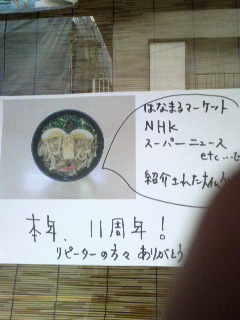 はなまるマーケット
NHK
スーパーニュース
etc...で
紹介された
本年、11周年！
リピーターの方々ありがとう